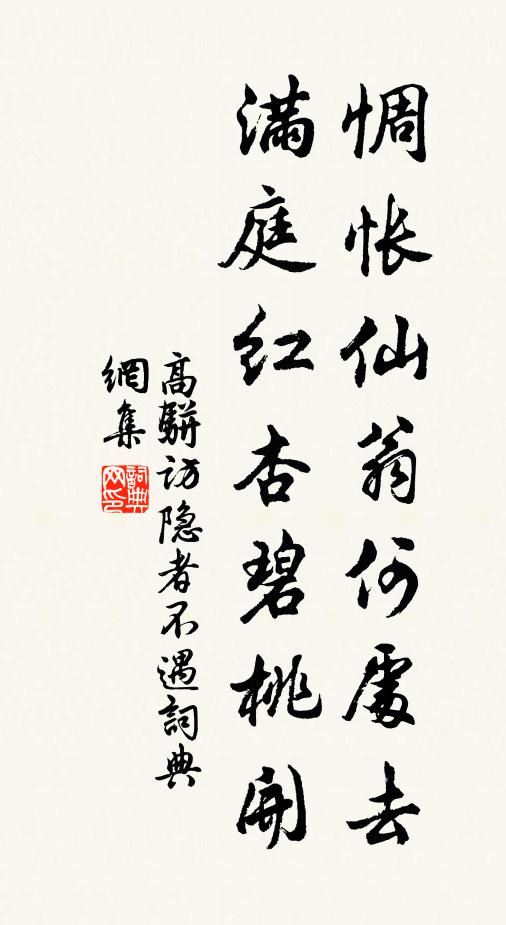 惆怅仙翁何處去
满庭红杏碧桃開
高駢访隐者不遇詞典
網集
詞典
网印